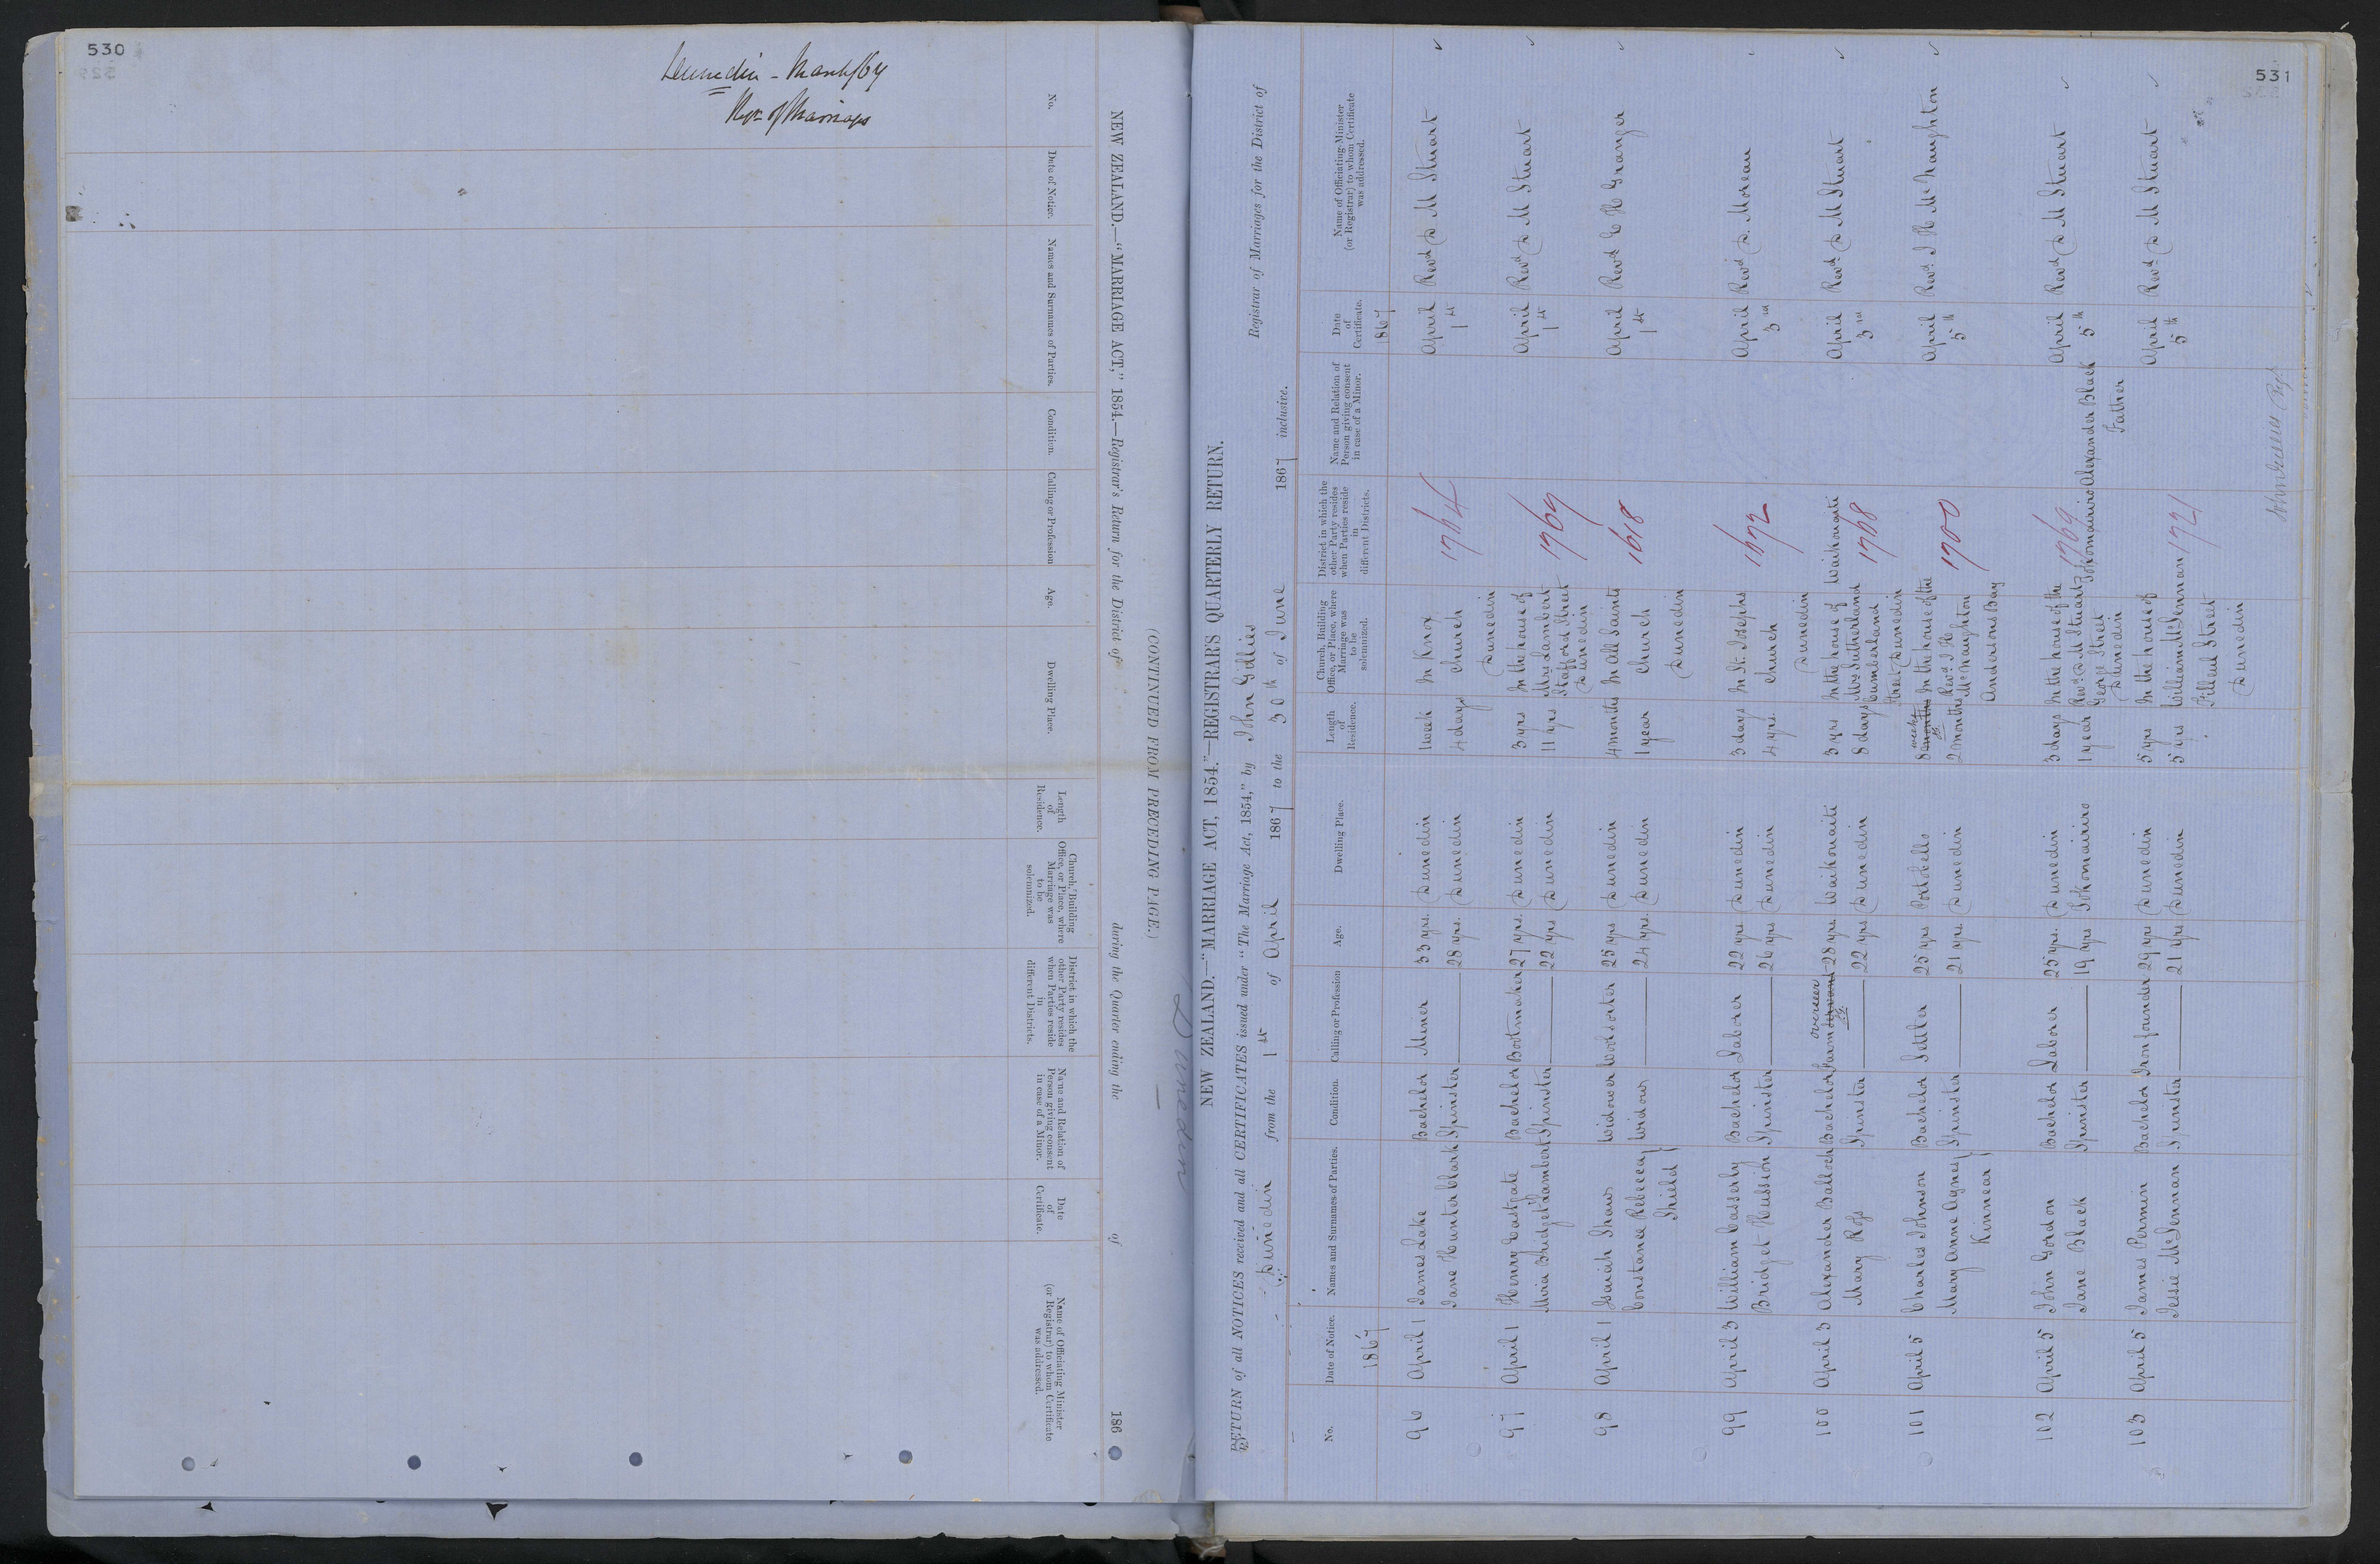 530
Dunedin - March/67
Rn of Marriages
NEW ZEALAND.—"MARRIAGE ACT," 1854.—Registrar's Return for the District of during the Quarter ending the of 186
(CONTINUED FROM PRECEDING PAGE.)
No.
Date of Notice.
Names and Surnames of Parties.
Condition.
Calling or Profession
Age.
Dwelling Place.
Length of Residence.
Church, Building Office, or Place, where Marriage was to be solemnized.
District in which the other Party resides when Parties reside in different Districts.
Name and Relation of Person giving consent in case of a Minor.
Date of Certificate.
Name of Officiating Minister (or Registrar) to whom Certificate was addressed.
Dunedin
531
NEW ZEALAND.—"MARRIAGE ACT, 1854."—REGISTRAR'S QUARTERLY RETURN.
RETURN of all NOTICES received and all CERTIFICATES issued under "The Marriage Act, 1854," by John Gillies Registrar of Marriages for the District of
Dunedin from the 1st of April 1867 to the 30th of June 1867 inclusive.
No.
Date of Notice.
Names and Surnames of Parties.
Condition.
Calling or Profession
Age.
Dwelling Place.
Length of Residence.
Church, Building Office, or Place, where Marriage was to be solemnized.
District in which the other Party resides when Parties reside in different Districts.
Name and Relation of Person giving consent in case of a Minor.
Date of Certificate.
Name of Officiating Minister (or Registrar) to whom Certificate was addressed.
1867 1867
96 April 1 James Lake Bachelor Miner 33 yrs. Dunedin 1 week In Knox 1764 April Revd D M Stuart
Jane Hunter Clark Spinster 28 yrs. Dunedin 4 days Church 1st
Dunedin
97 April 1 Henry Eastgate Bachelor Bootmaker 27 yrs. Dunedin 3 yrs In the house of 1769 April Revd D M Stuart
Maria Bridget Lambert Spinster 22 yrs Dunedin 11 yrs Mrs Lambert 1st
Stafford Street
Dunedin
98 April 1 Isaiah Shaw Widower Woolsorter 25 yrs Dunedin 4 months In All Saints 1618 April Revd E H Granger
Constance Rebecca Widow 24 yrs. Dunedin 1 year Church 1st
Shield Dunedin
99 April 3 William Casserly Bachelor Laborer 22 yrs. Dunedin 3 days In St. Josephs 1672 April Revd D. Moreau
Bridget Hussion Spinster 26 yrs Dunedin 4 yrs. Church 3rd
Dunedin
overseer
100 April 3 Alexander Balloch Bachelor Farm servant 28 yrs. Waikouaiti 3 yrs In the house of Waikouaiti April Revd D M Stuart
Mary Ross Spinster 22 yrs Dunedin 8 days Mrs Sutherland 1768 3rd
Cumberland
Street Dunedin
weeks
101 April 5 Charles Johnson Bachelor Settler 25 yrs Portobello 8 months In the house of the 1700 April Revd J H McNaughton
Mary Anne Agnes Spinster 21 yrs. Dunedin 2 months Revd J H 5th
Kinnear McNaughton
Andersons Bay
102 April 5 John Gordon Bachelor Laborer 25 yrs. Dunedin 3 days In the house of the 1769 April Revd D M Stuart
Jane Black Spinster 19 yrs Tokomairiro 1 year Revd D M Stuart Tokomairiro Alexander Black 5th
George Street Father
Dunedin
103 April 5 James Permin Bachelor Iron founder 29 yrs Dunedin 5 yrs In the house of April Revd D M Stuart
Jessie McLennan Spinster 21 yrs Dunedin 5 yrs William McLennan 1721 5th
Filleul Street
Dunedin